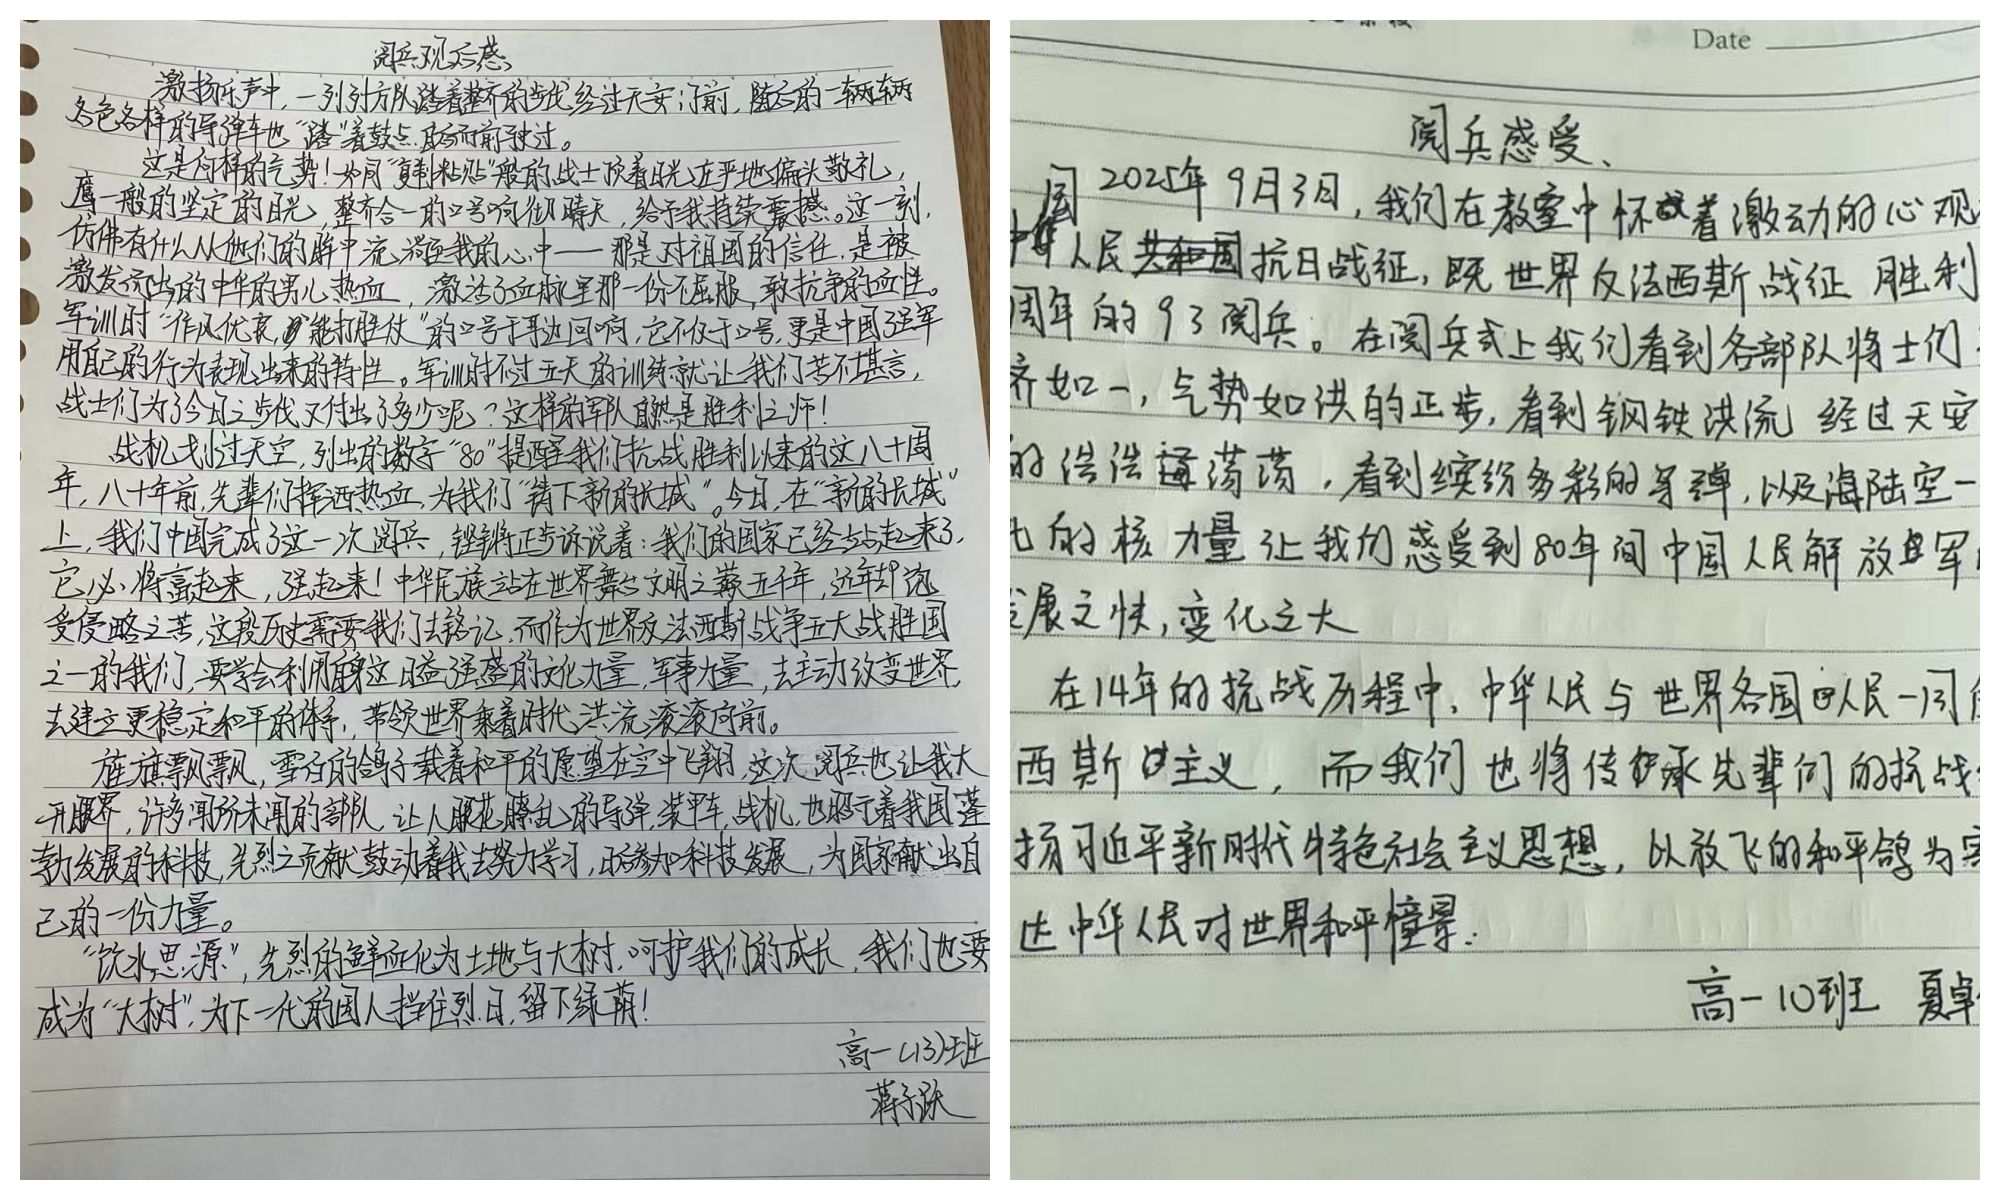 阅兵观后感
激扬乐声中，一列列方队踏着整齐的步伐经过天安门前，随后的一辆辆
各色各样的导弹车也“踏”着鼓点向前驶过。
这是何样的气势！如同“复制粘贴”般的战士顶着目光庄严地偏头敬礼，
鹰一般的坚定的目光，整齐合一的口号响彻晴天，给予我持续震撼。这一刻，
仿佛有什么从他们的眸中流淌至我的心中——那是对祖国的信任，是被
激发流出的中华的男儿热血，激活了血脉里那一份不屈服，敢抗争的血性。
军训时“作风优良，能打胜仗”的口号于耳边回响，它不仅于口号，更是中国强军
用自己的行为表现出来的特性。军训时不过五天的训练就让我们苦不堪言，
战士们为了今日之步伐又付出了多少呢？这样的军队自然是胜利之师！
战机划过天空，列出的数字“80”提醒我们抗战胜利以来的这八十周
年，八十年前，先辈们挥洒热血，为我们“铸下新的长城”。今日，在“新的长城”
上，我们中国完成了这一次阅兵，铿锵正步诉说着：我们的国家已经站起来了，
它必将富起来，强起来！中华民族立在世界舞台文明之巅五千年，近年却饱
受侵略之苦，这段历史需要我们去铭记，而作为世界反法西斯战争五大战胜国
之一的我们，要学会利用自身这日益强盛的文化力量，军事力量，去主动改变世界，
去建立更稳定和平的体系，带领世界乘着时代洪流滚滚向前。
旌旗飘飘，雪白的鸽子载着和平的愿望在空中飞翔，这次阅兵也让我大
开眼界，许多闻所未闻的部队，让人眼花瞭乱的导弹，装甲车，战机，也昭示着我国蓬
勃发展的科技，先烈之贡献鼓动着我去努力学习，参加科技发展，为国家献出自
己的一份力量。
“饮水思源”，先烈的鲜血化为土地与大树，呵护我们的成长，我们也要
成为“大树”，为下一代的国人挡住烈日，留下绿荫！
高一（13）班
蒋子跃
Date
阅兵感受、
2025年9月3日，我们在教室中怀着激动的心观
人民抗日战征，既世界反法西斯战征胜利
周年的93阅兵。在阅兵式上我们看到各部队将士们
齐如一，气势如洪的正步，看到钢铁洪流经过天安
的浩浩荡荡，看到缤纷多彩的导弹，以及海陆空一
的核力量让我们感受到80年间中国人民解放军
展之快，变化之大
在14年的抗战历程中，中华人民与世界各国人民一同
西斯主义，而我们也将传承先辈们的抗战
扬习近平新时代特色社会主义思想，以放飞的和平鸽为
达中华人民对世界和平憧景.
高一10班 夏卓